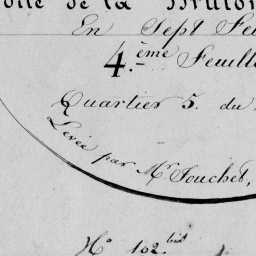 de la Bruto
En Sept Feu
4.ème Feuille
Quartier 5. du
Levée par Mr. Fouchet,
No. 102.bis